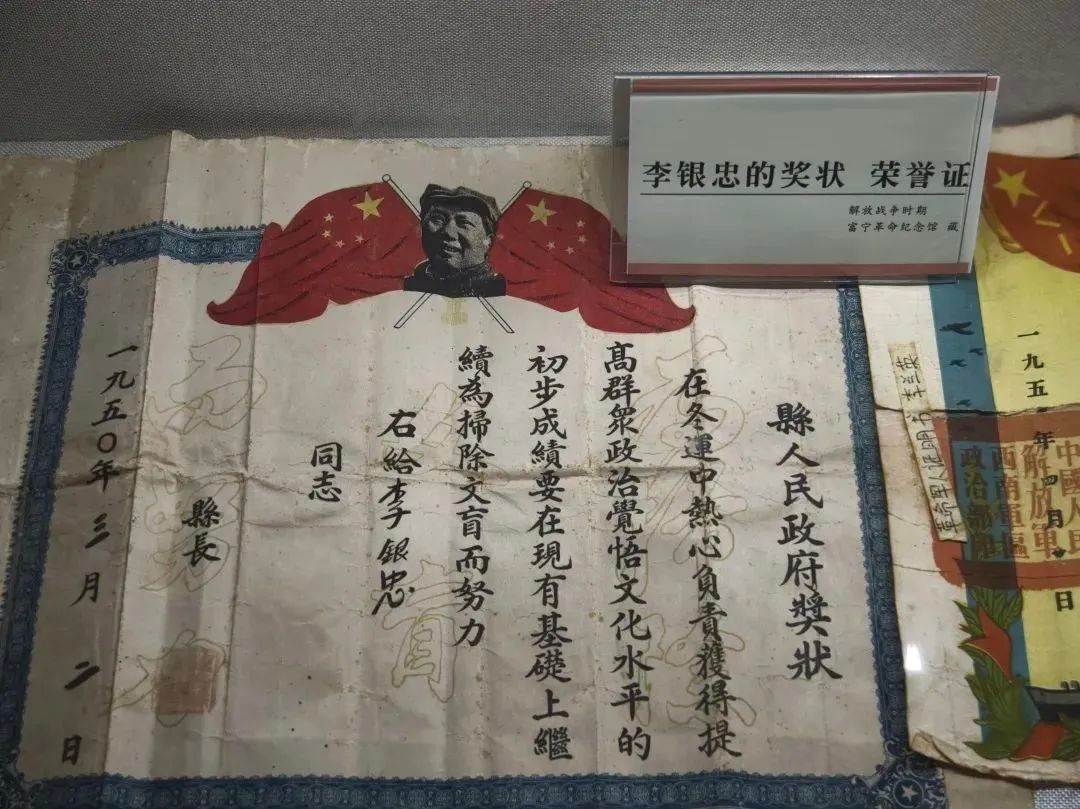 李银忠的奖状 荣誉证
解放战争时期
富宁革命纪念馆 藏
縣人民政府獎狀
在冬運中熱心負責獲得提
高群眾政治覺悟文化水平的
初步成績要在現有基礎上繼
續為掃除文盲而努力
右給李銀忠
同志
縣長
一九五〇年三月二日
中國人民
解放軍
西南軍區
政治部